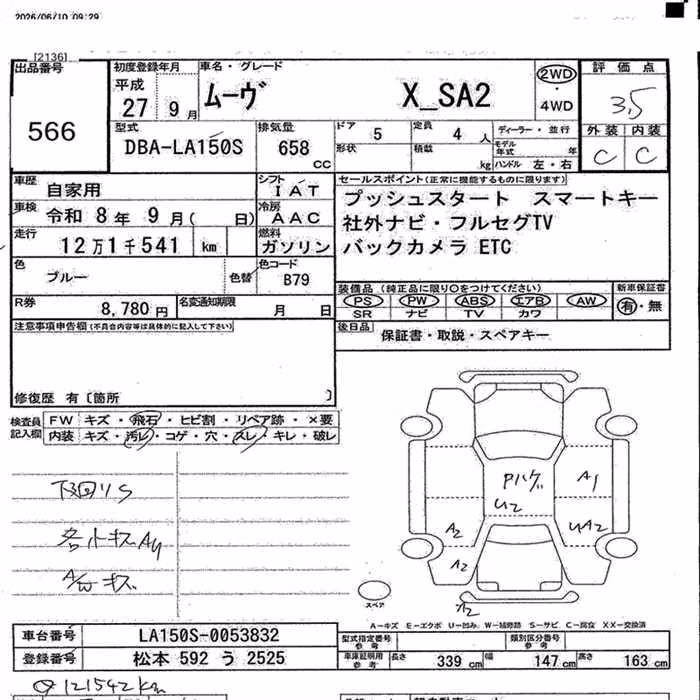 2026/06/10 09:29
[2136]
出品番号 566
初度登録年月 平成 27 9月
車名・グレード ムーヴ X_SA2
2WD ・ 4WD
評価点 3.5
外装 内装
C C
型式 DBA-LA150S
排気量 658 CC
ドア 5
定員 4人
形状 積載 kg
ディーラー・並行
モデル年式 年
ハンドル 左・右
車歴 自家用
シフト IAT
車検 令和 8年 9月( 日)
冷房 AAC
走行 12万1千541 km
燃料 ガソリン
セールスポイント(正常に機能するものに限ります)
プッシュスタート スマートキー
社外ナビ・フルセグTV
バックカメラ ETC
色 ブルー 色替
色コード B79
装備品 (純正品に限り○をつけてください)
PS PW ABS エアB AW
SR ナビ TV カワ
新車保証書 有・無
R券 8,780円
名変通知期限 月 日
後日品 保証書・取説・スペアキー
注意事項申告欄(不具合内容等は具体的に記入して下さい)
修復歴 有〔箇所 〕
検査員記入欄
FW キズ・飛石・ヒビ割・リペア跡・×要
内装 キズ・汚レ・コゲ・穴・スレ・キレ・破レ
下回りS
各小キズA4
A/Wキズ
Pハゲ
U2
A1
A2
UA2
A2
A2
スペア
A-キズ E-エクボ U-凹み W-補修跡 S-サビ C-腐食 XX-交換済
車台番号 LA150S-0053832
登録番号 松本 592 う 2525
型式指定番号 参考
類別区分番号 参考
車庫証明用 参考 長さ 339cm 幅 147cm 高さ 163cm
121542km